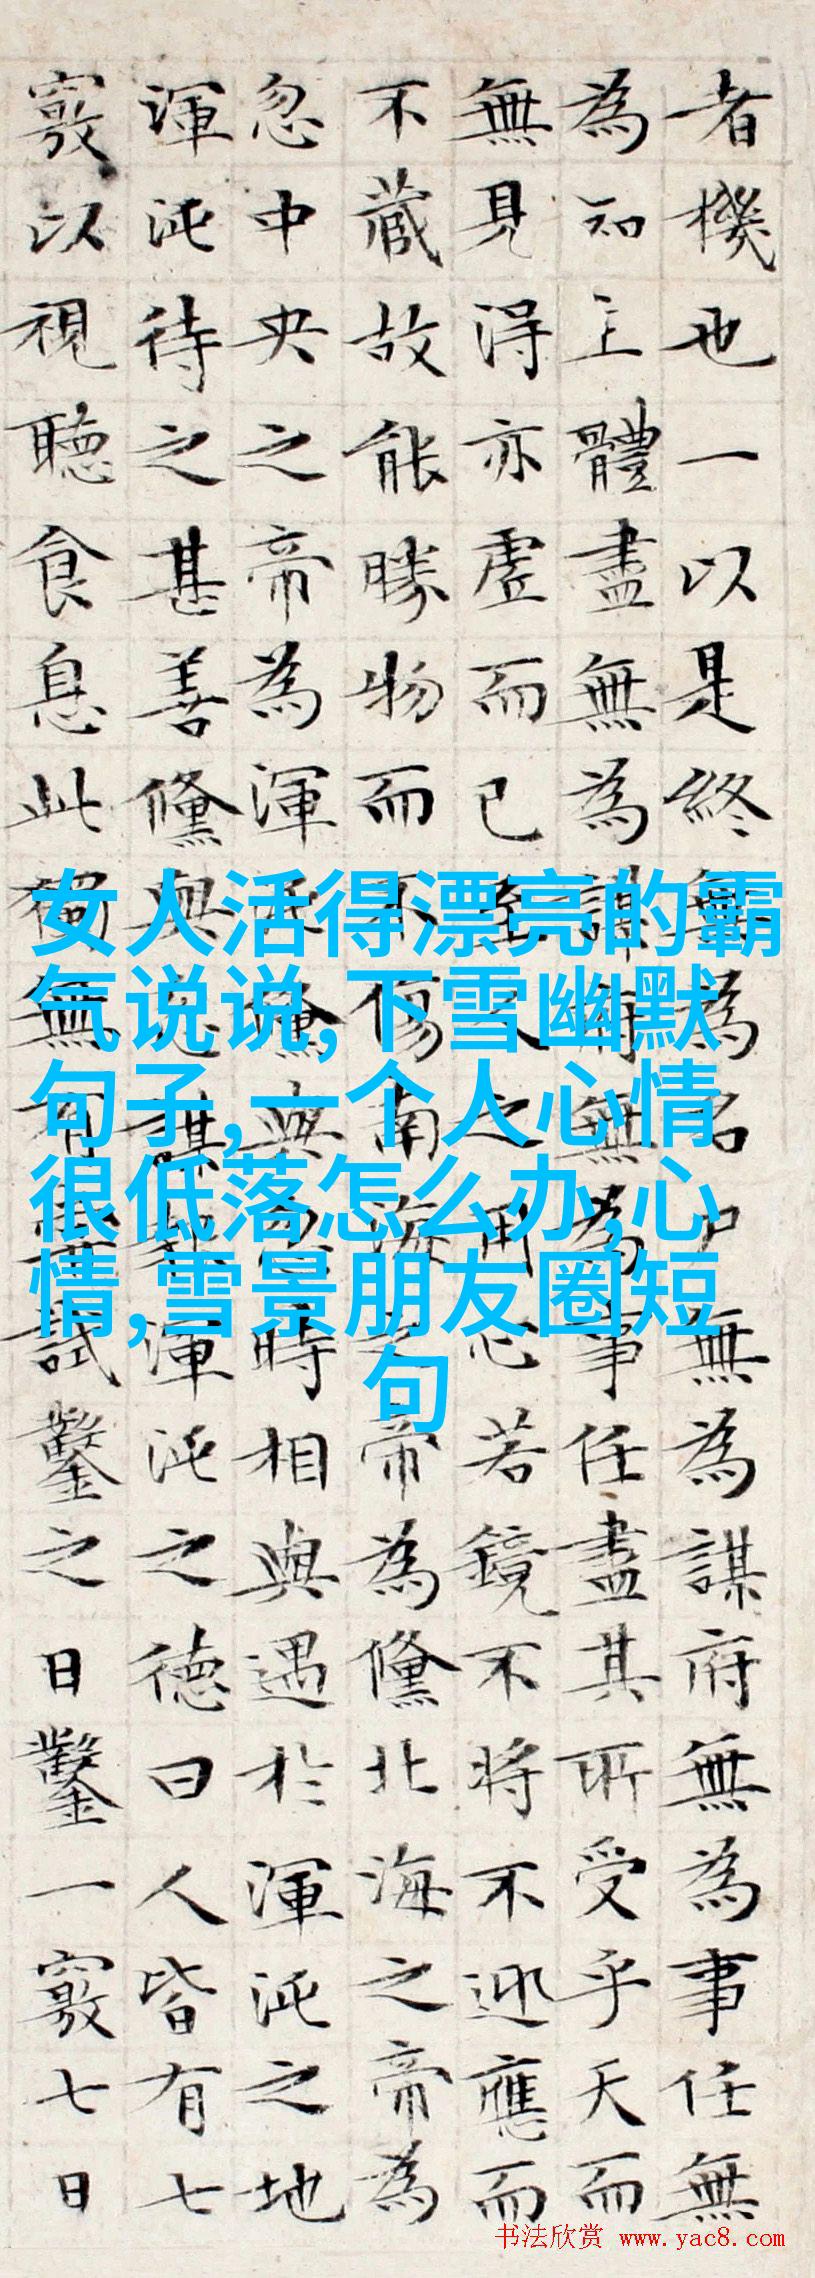 者機也一以是終無為名尸無為謀府無為事任無
為知主體盡無為謀府無為事任盡其所受乎天而
無見得亦虛而已至人之用心若鏡不將不迎應而
不藏故能勝物而不傷南海之帝為儵北海之帝為
忽中央之帝為渾沌儵與忽時相與遇於渾沌之地
渾沌待之甚善儵與忽謀報渾沌之德曰人皆有七
竅以視聽食息此獨無有嘗試鑿之日鑿一竅七日
女人活得漂亮的霸
气说说,下雪幽默
句子,一个人心情
很低落怎么办,心
情,雪景朋友圈短
句
书法欣赏 www.yac8.com